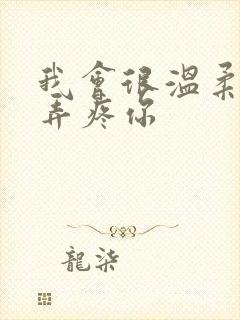 我會很溫柔
弄疼你
龍柒